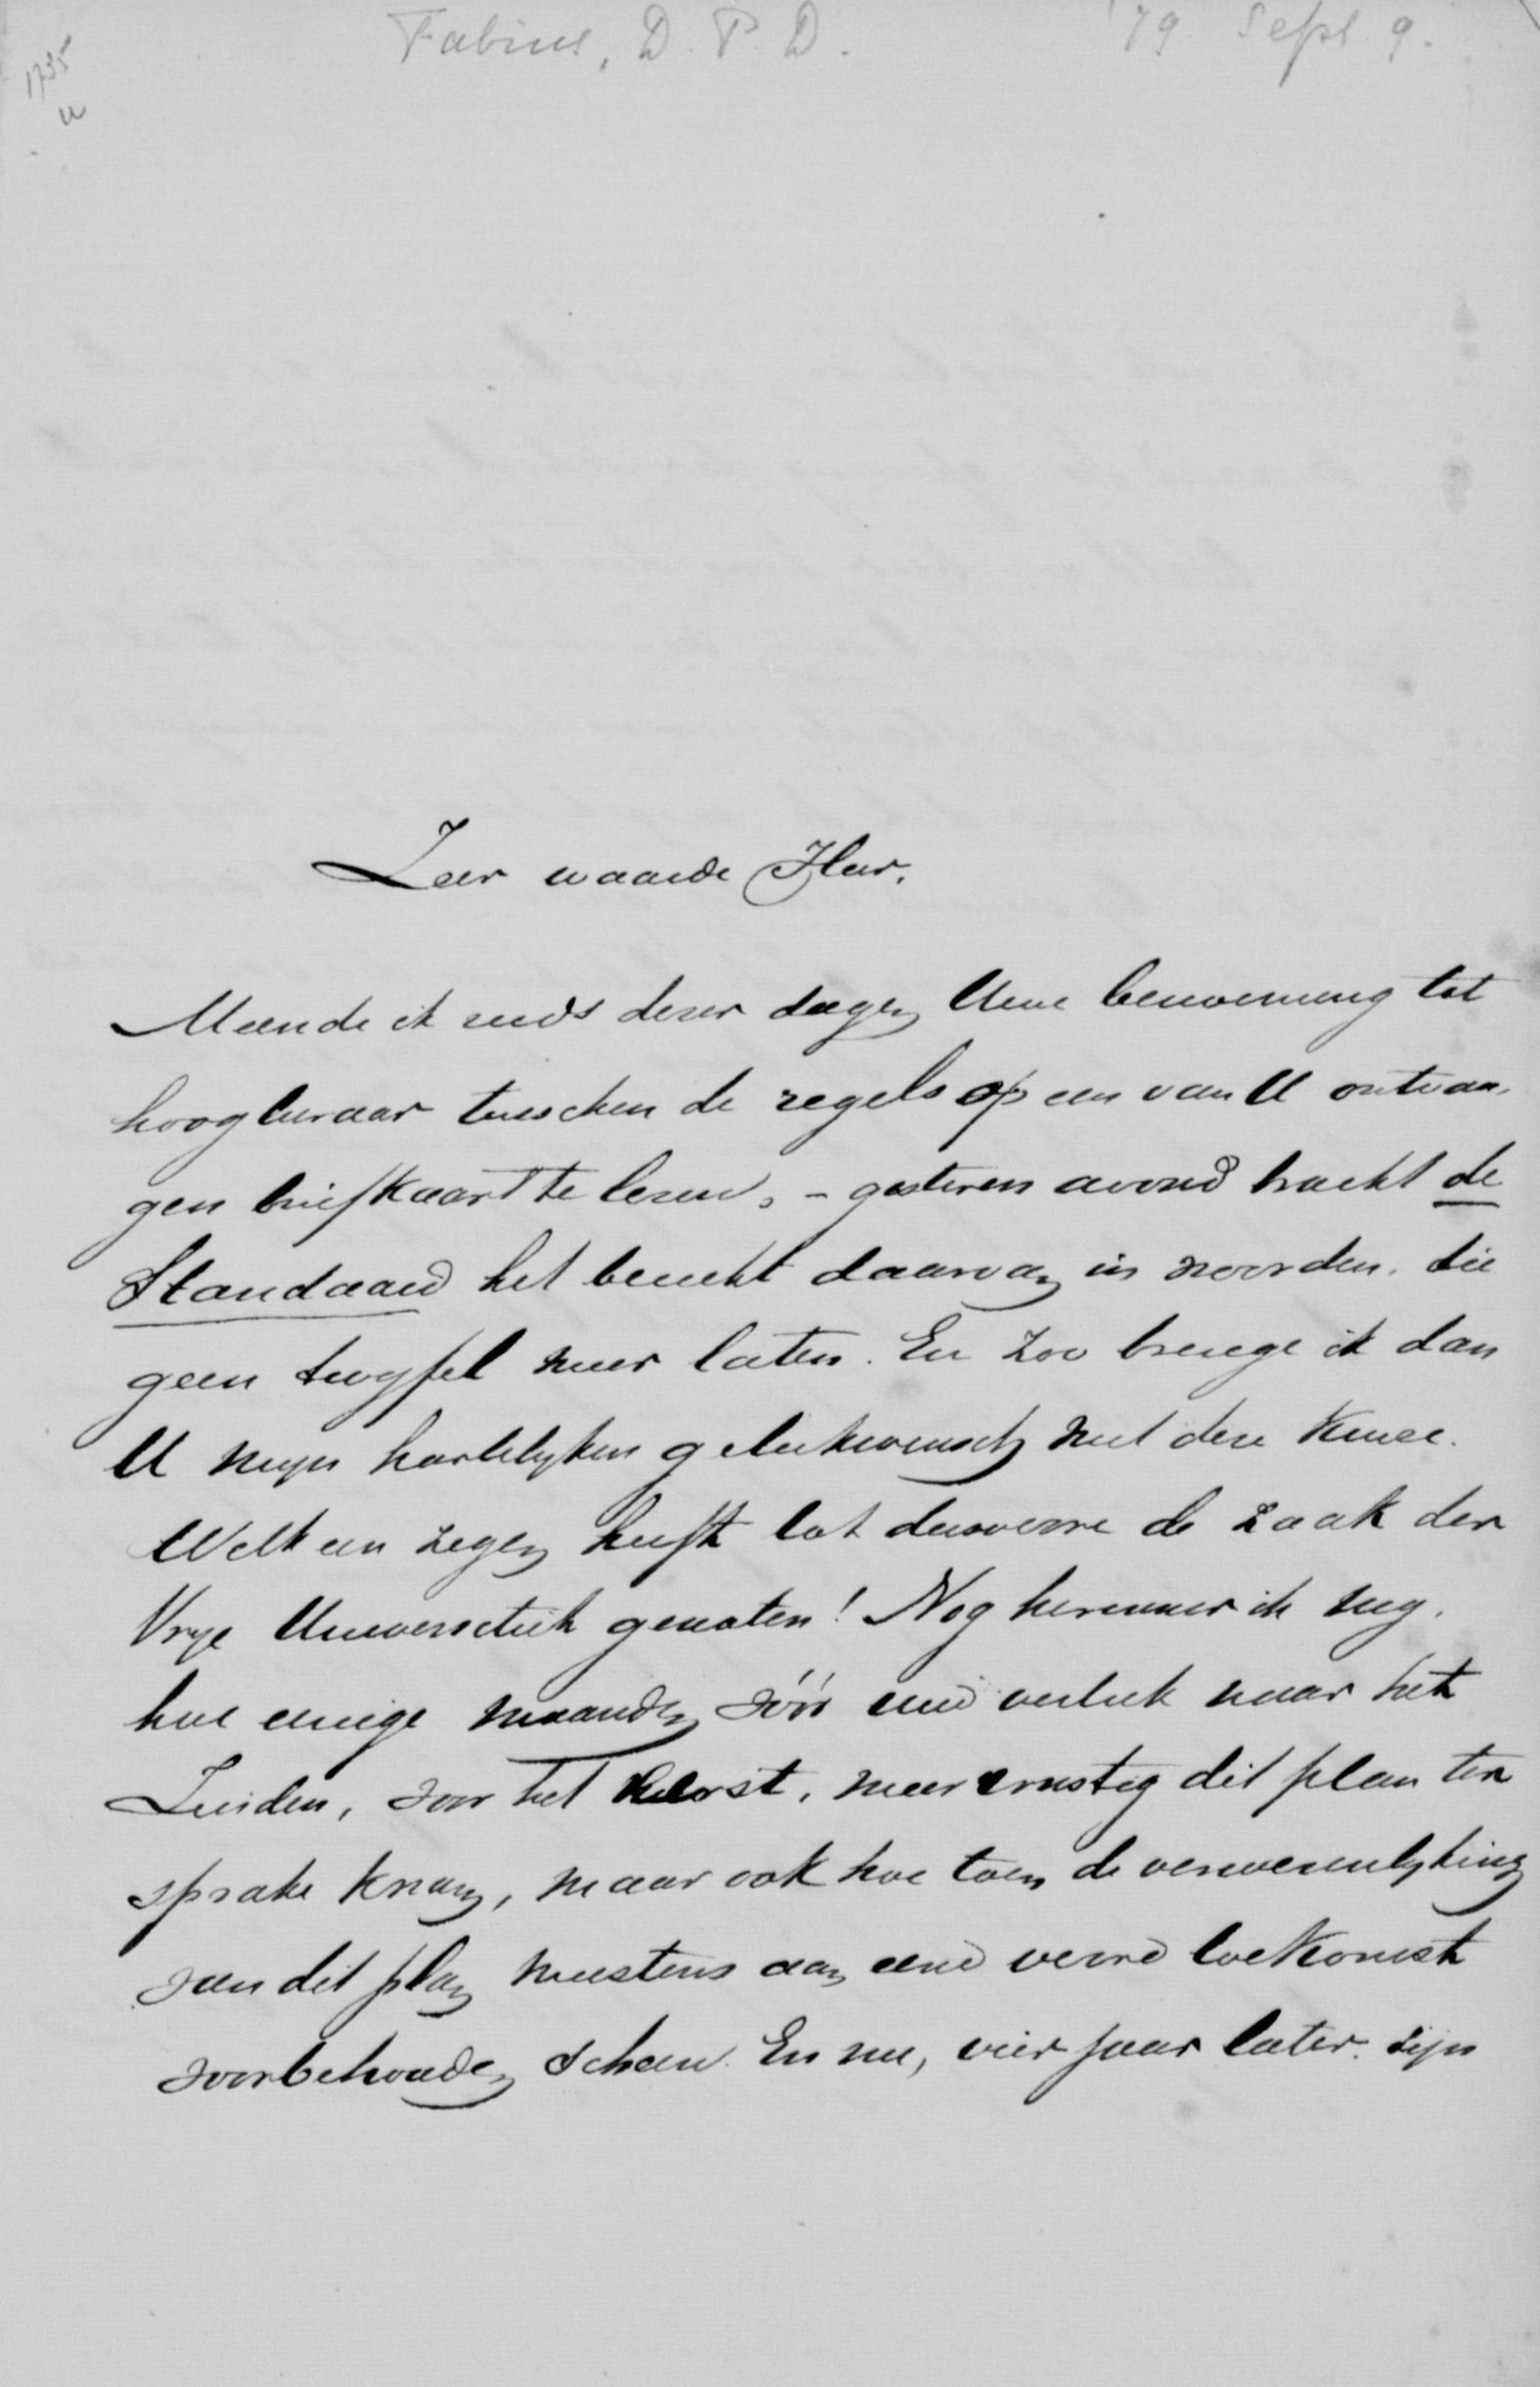 Fabius, D. P. D. '79 Sept 9.
1735
Zeer waarde Heer,
Meende ik reeds dezer dagen Uwe benoeming tot
hoogleeraar tusschen de regels op een van U ontvan-
gen briefkaart te lezen, - gisteren avond bracht de
Standaard het bericht daarvan in woorden, die
geen twijfel meer laten. En zoo brenge ik dan
U mijn hartelijken gelukwensch met deze keuze.
Welk een zegen heeft tot dusverre de zaak der
Vrije Universiteit genoten! Nog herinner ik mij,
hoe eenige maanden vóór uw vertrek naar het
Zuiden, voor het eerst, meer ernstig dit plan ter
sprake kwam, maar ook hoe toen de verwezenlijking
van dit plan meestens aan eene verre toekomst
voorbehouden scheen. En nu, vier jaar later, zijn